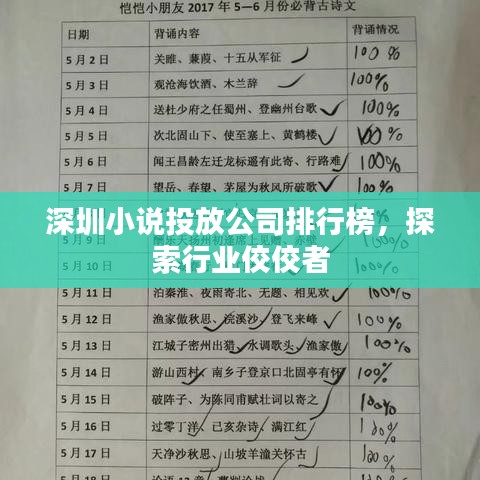 恺恺小朋友 2017 年 5—6 月份必背古诗文
日期 背诵内容 背诵情况
5 月 2 日 关雎、蒹葭、十五从军征 100%
5 月 3 日 观沧海饮酒、木兰辞 100%
5 月 4 日 送杜少府之任蜀州、登幽州台歌 100%
5 月 5 日 次北固山下、使至塞上、黄鹤楼 100%
5 月 6 日 闻王昌龄左迁龙标遥有此寄、行路难 100%
5 月 7 日 望岳、春望、茅屋为秋风所破歌 100%
深圳小说投放公司排行榜，探
索行业佼佼者
5 月 11 日 泊秦淮、夜雨寄北、无题、相见欢 100%
5 月 12 日 渔家傲秋思、浣溪沙、登飞来峰 100%
5 月 13 日 江城子密州出猎、水调歌头、渔家傲 100%
5 月 14 日 游山西村、南乡子登京口北固亭有怀 100%
5 月 15 日 破阵子、为陈同甫赋壮词以寄之 100%
5 月 16 日 过零丁洋、己亥杂诗、满江红 100%
5 月 17 日 天净沙秋思、山坡羊潼关怀古 100%